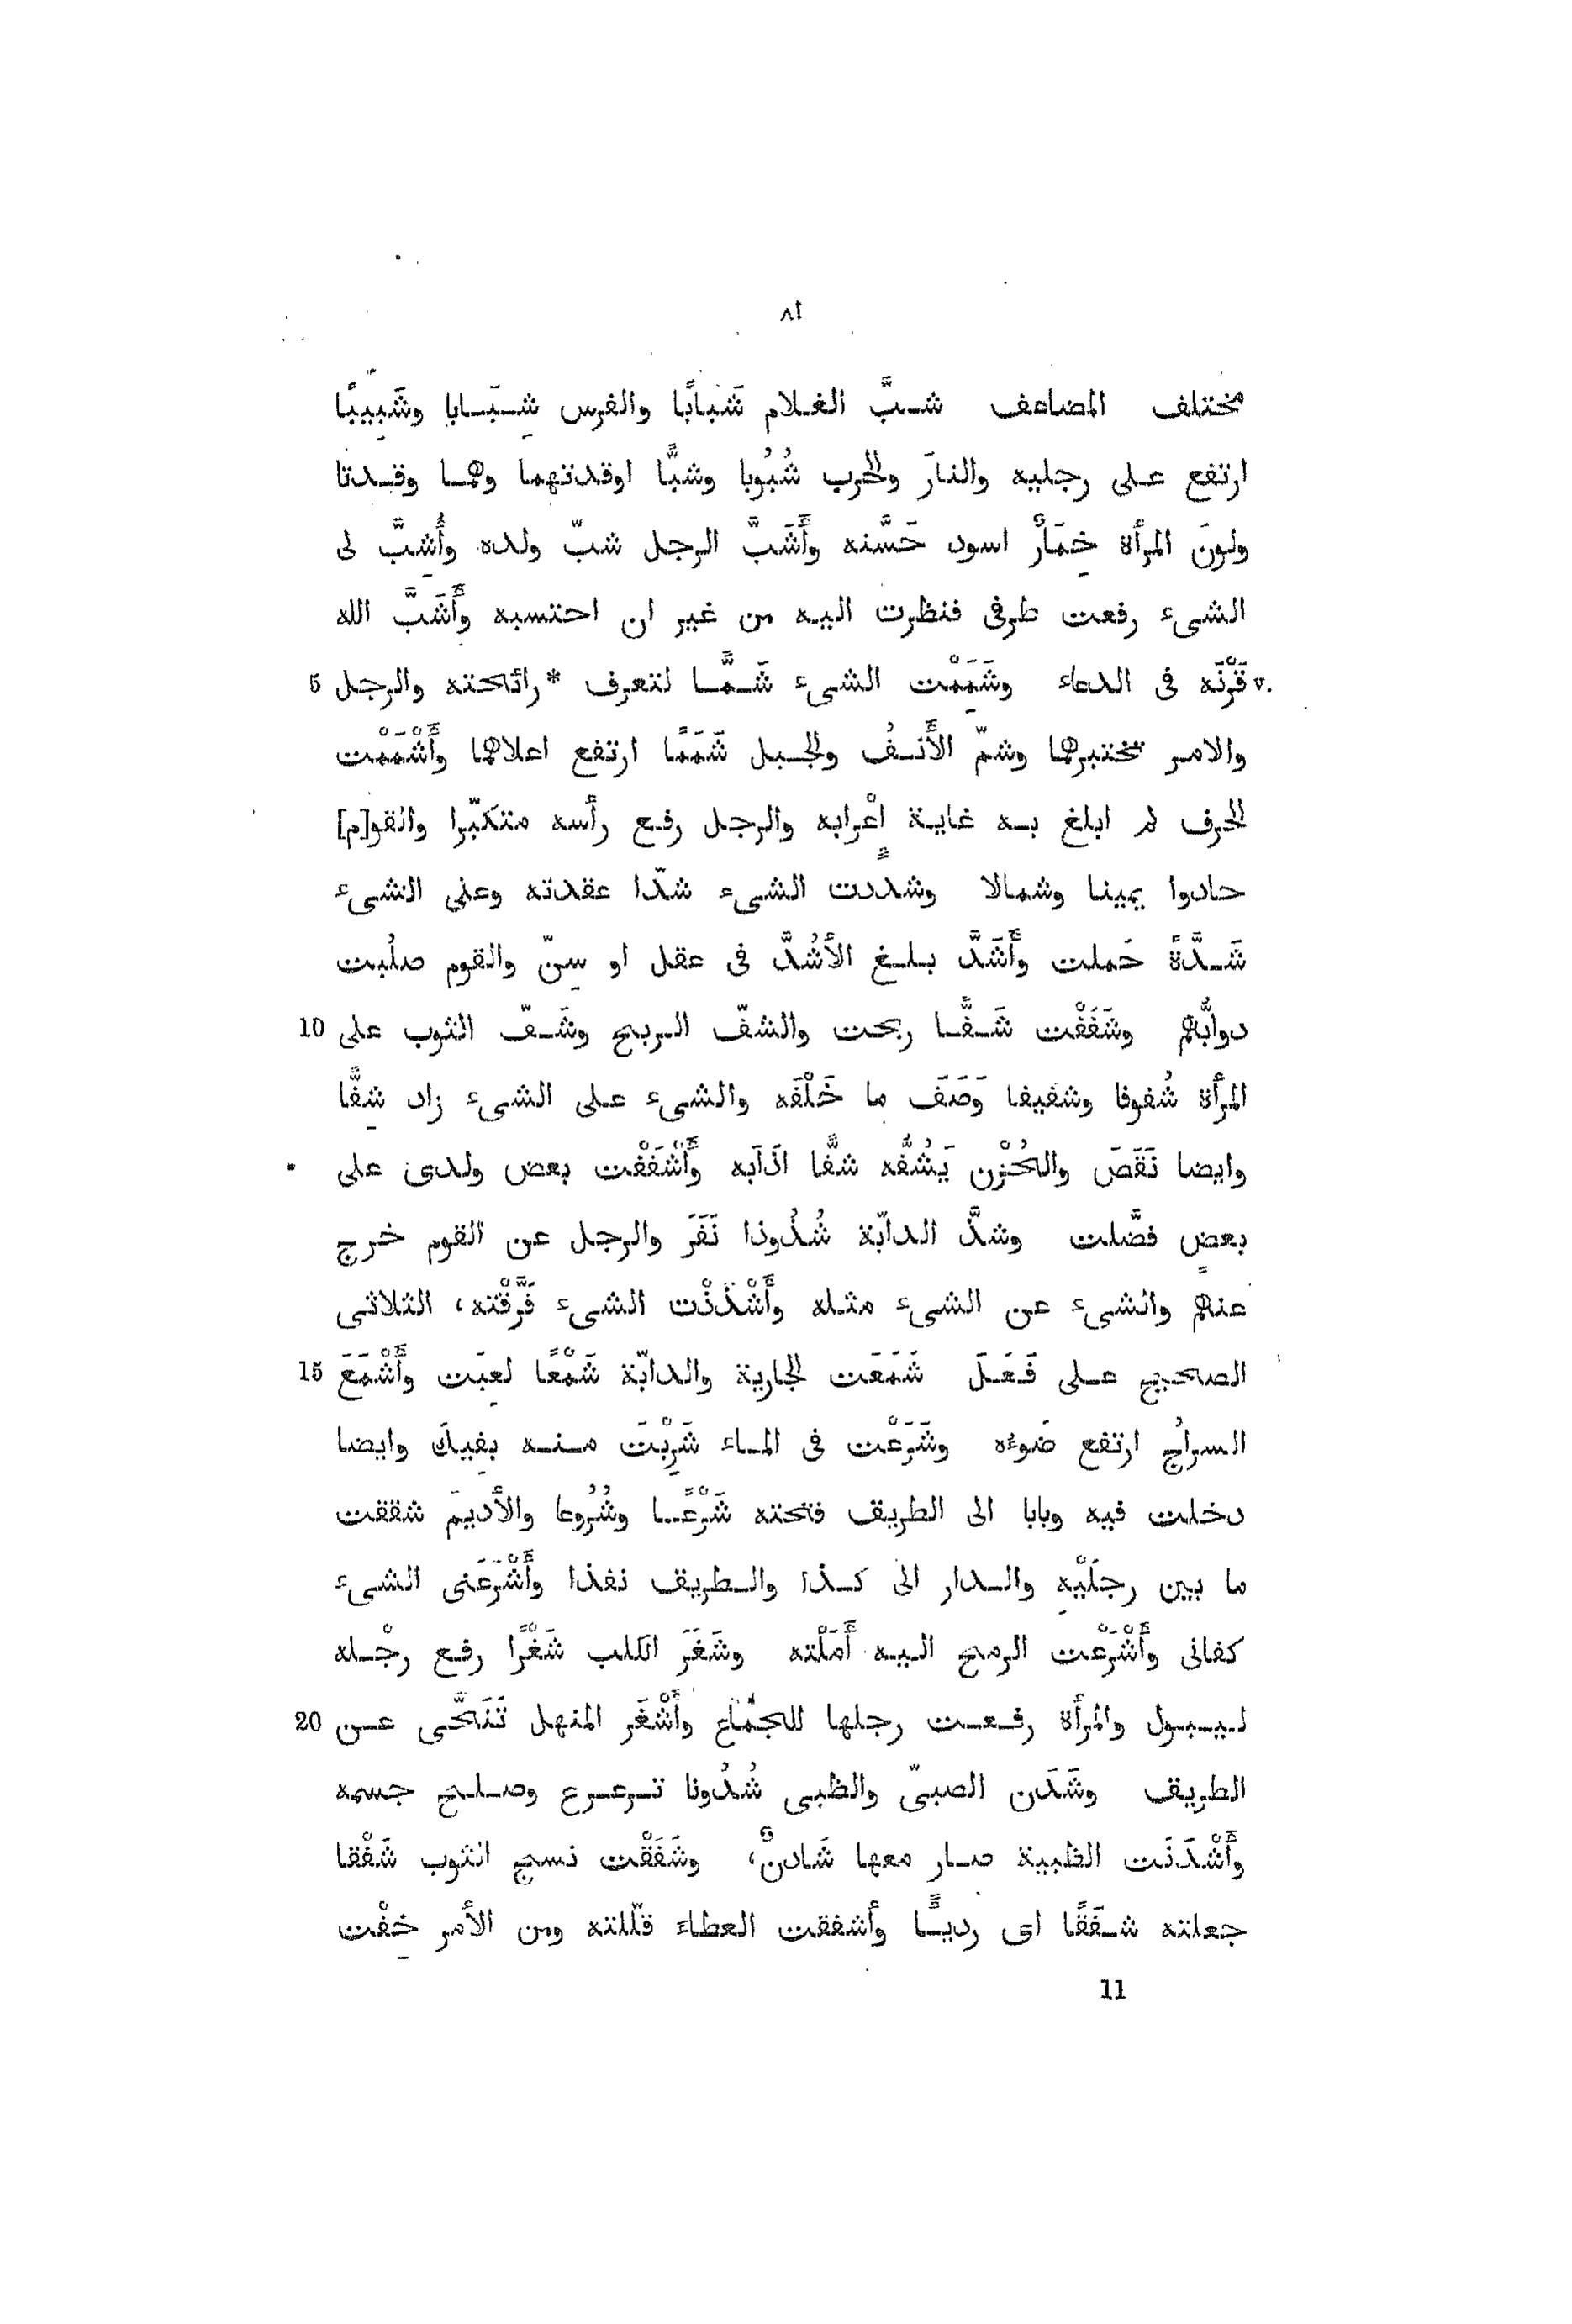 ٨١
مختلف المضاعف شـبَّ الغـلام شَبابًا والفرس شِـبَـابا وشَبِيبًا
ارتفع عـلى رجليه والنارَ والحرب شُبُوبا وشبًّا اوقدتهما وهمـا وقـدتا
ولونَ المرأة خِمَارٌ اسود حَسَّنه وأَشَبَّ الرجل شبّ ولده وأُشِبَّ لى
الشىء رفعت طرفى فنظرت اليـه من غير ان احتسبه وأَشَبَّ الله
٧٠ قَرْنَه فى الدعاء وشَمِمْت الشىء شَـمًّـا لتعرف * رائحته والرجل 5
والامـر تختبرهما وشمّ الأَنـفُ والجـبل شَمَمًا ارتفع اعلاهما وأَشْمَمْت
الحرف لم ابلغ بـه غايـة اعْرابه والرجل رفـع رأسه متكبّرا والقو[م]
حادوا يمينا وشمالا وشددت الشىء شدّا عقدته وعلى الشىء
شَـدَّةً حَملت وأَشَدَّ بـلـغ الأَشُدَّ فى عقل او سِنّ والقوم صلُبت
دوابُّهم وشَفَفْت شَـفًّـا ربحت والشفّ الـربح وشَـفّ الثوب على 10
المرأة شُفوفا وشفيفا وَصَفَ ما خَلْفَه والشىء عـلى الشىء زاد شِفًّا
وايضا نَقَصَ والحُزْن يَشُفُّه شفًّا اذابه وأَشْفَفْت بعض ولدى على
بعضٍ فضّلت وشذَّ الدابّة شُذُوذا نَفَرَ والرجل عن القوم خرج
عنهم والشىء عن الشىء مثـله وأَشْذَذْت الشىء فَرَّقْته، الثلاثى
الصحيح عـلى فَـعَـلَ شَمَعَت الجارية والدابّة شَمْعًا لعِبَت وأَشْمَعَ 15
السراجُ ارتفع ضَوءُه وشَرَعْت فى المـاء شَرِبْتَ مـنـه بفِيكَ وايضا
دخلت فيه وبابا الى الطريق فتحته شَرْعًـا وشُرُوعا والأديمَ شققت
ما بين رجلَيْهِ والـدار الى كـذا والـطريق نفذا وأَشْرَعَنى الشىء
كفانى وأَشْرَعْت الرمح الـيـه أَمَلْته وشَغَرَ الكلب شَغْرًا رفـع رجْـله
لـيـبـول والمرأة رفـعـت رجلها للجماع وأَشْغَر المنهل تَنَحَّى عـن 20
الطريق وشَدَن الصبىّ والظبى شُدُونا تـرعـرع وصـلـح جسمه
وأَشْدَنَت الظبية صـار معها شَادنٌ، وشَفَقْت نسج الثوب شَفْقا
جعلته شـفَقًا اى رديـئًـا وأشفقت العطاء قلّلته ومن الأمر خِفْت
11